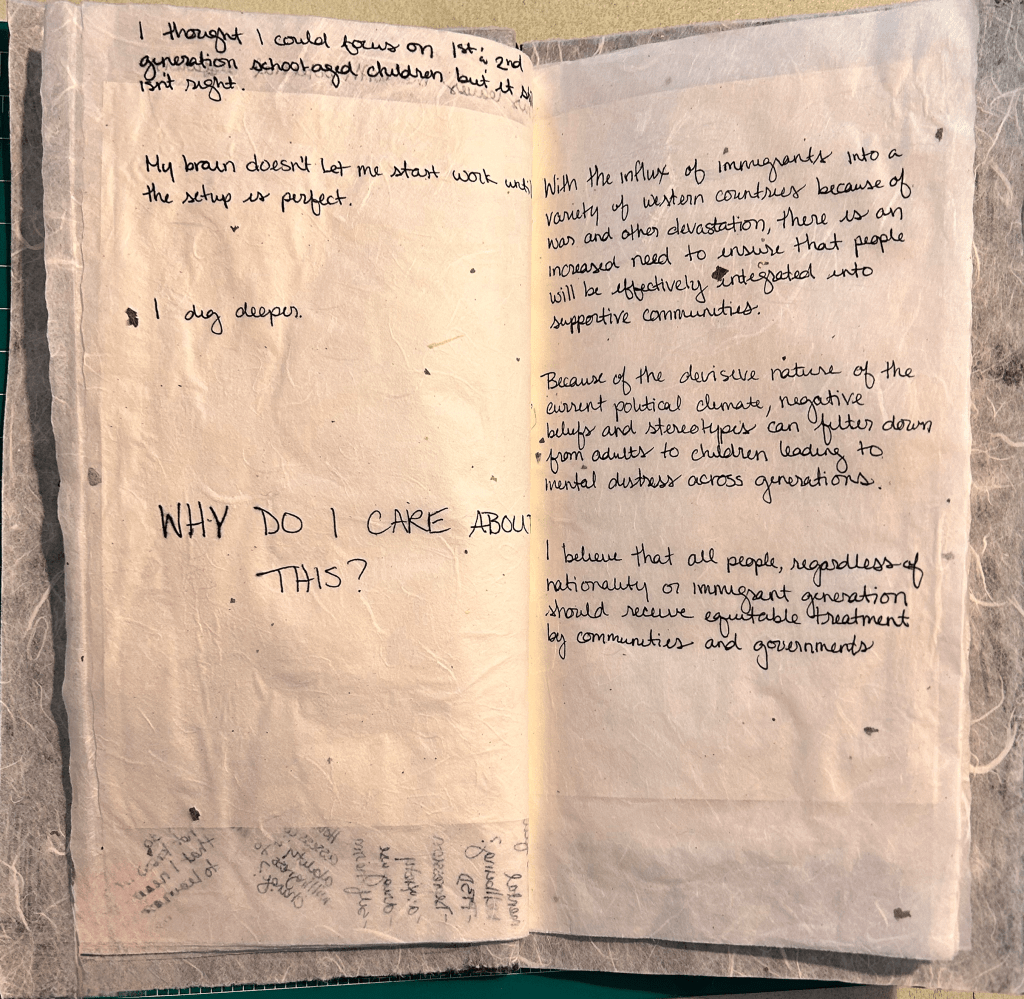 I thought I could focus on 1st & 2nd
generation school aged children but it
isn't right.
My brain doesn't let me start work until
the setup is perfect.
I dig deeper.
WHY DO I CARE ABOUT
THIS?
With the influx of immigrants into a
variety of western countries because of
war and other devastation, there is an
increased need to ensure that people
will be effectively integrated into
supportive communities.
Because of the devisive nature of the
current political climate, negative
beliefs and stereotypes can filter down
from adults to children leading to
mental distress across generations.
I believe that all people, regardless of
nationality or immigrant generation
should receive equitable treatment
by communities and governments